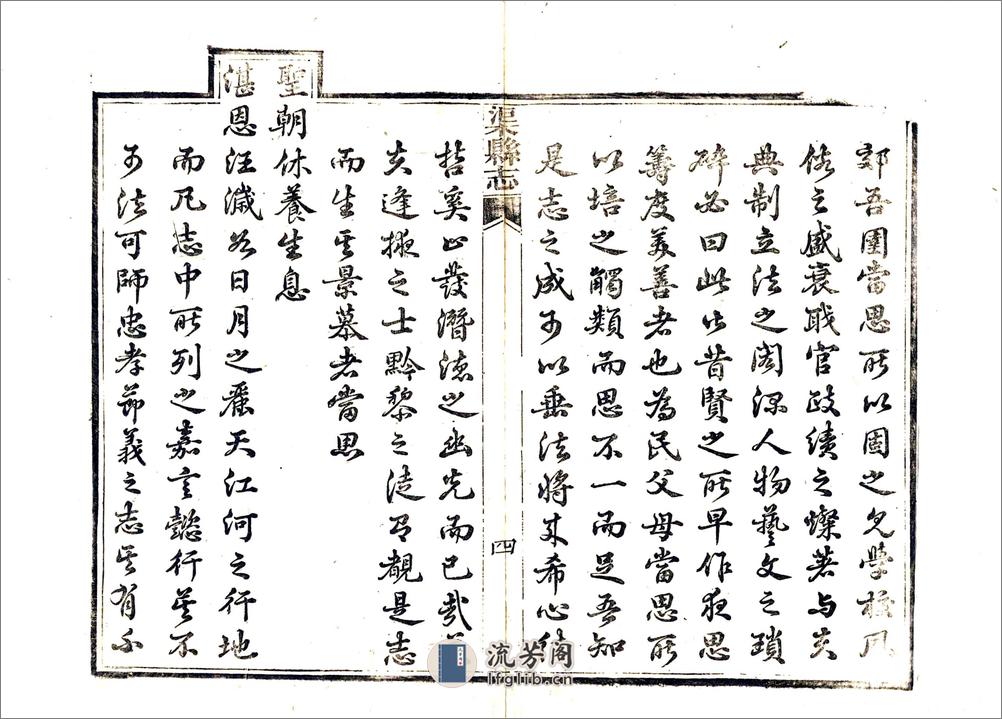 郊吾圉當思所以固之見學校風
俗之盛衰職官政績之燦著与夫
典制立法之閎深人物藝文之瑣
碎必曰此皆昔賢之所早作夜思
籌度美善者也為民父母當思所
以培之觸類而思不一而足吾知
是志之成可以垂法將來希心往
渠縣志
四
哲奚止發潛德之幽光而已哉若
夫逢掖之士黔黎之徒乃觀是志
而生其景慕者當思
聖朝休養生息
湛恩汪濊如日月之麗天江河之行地
而凡志中所列之嘉言懿行莫不
可法可師忠孝節義之志其有不
流芳阁
lfglib.cn